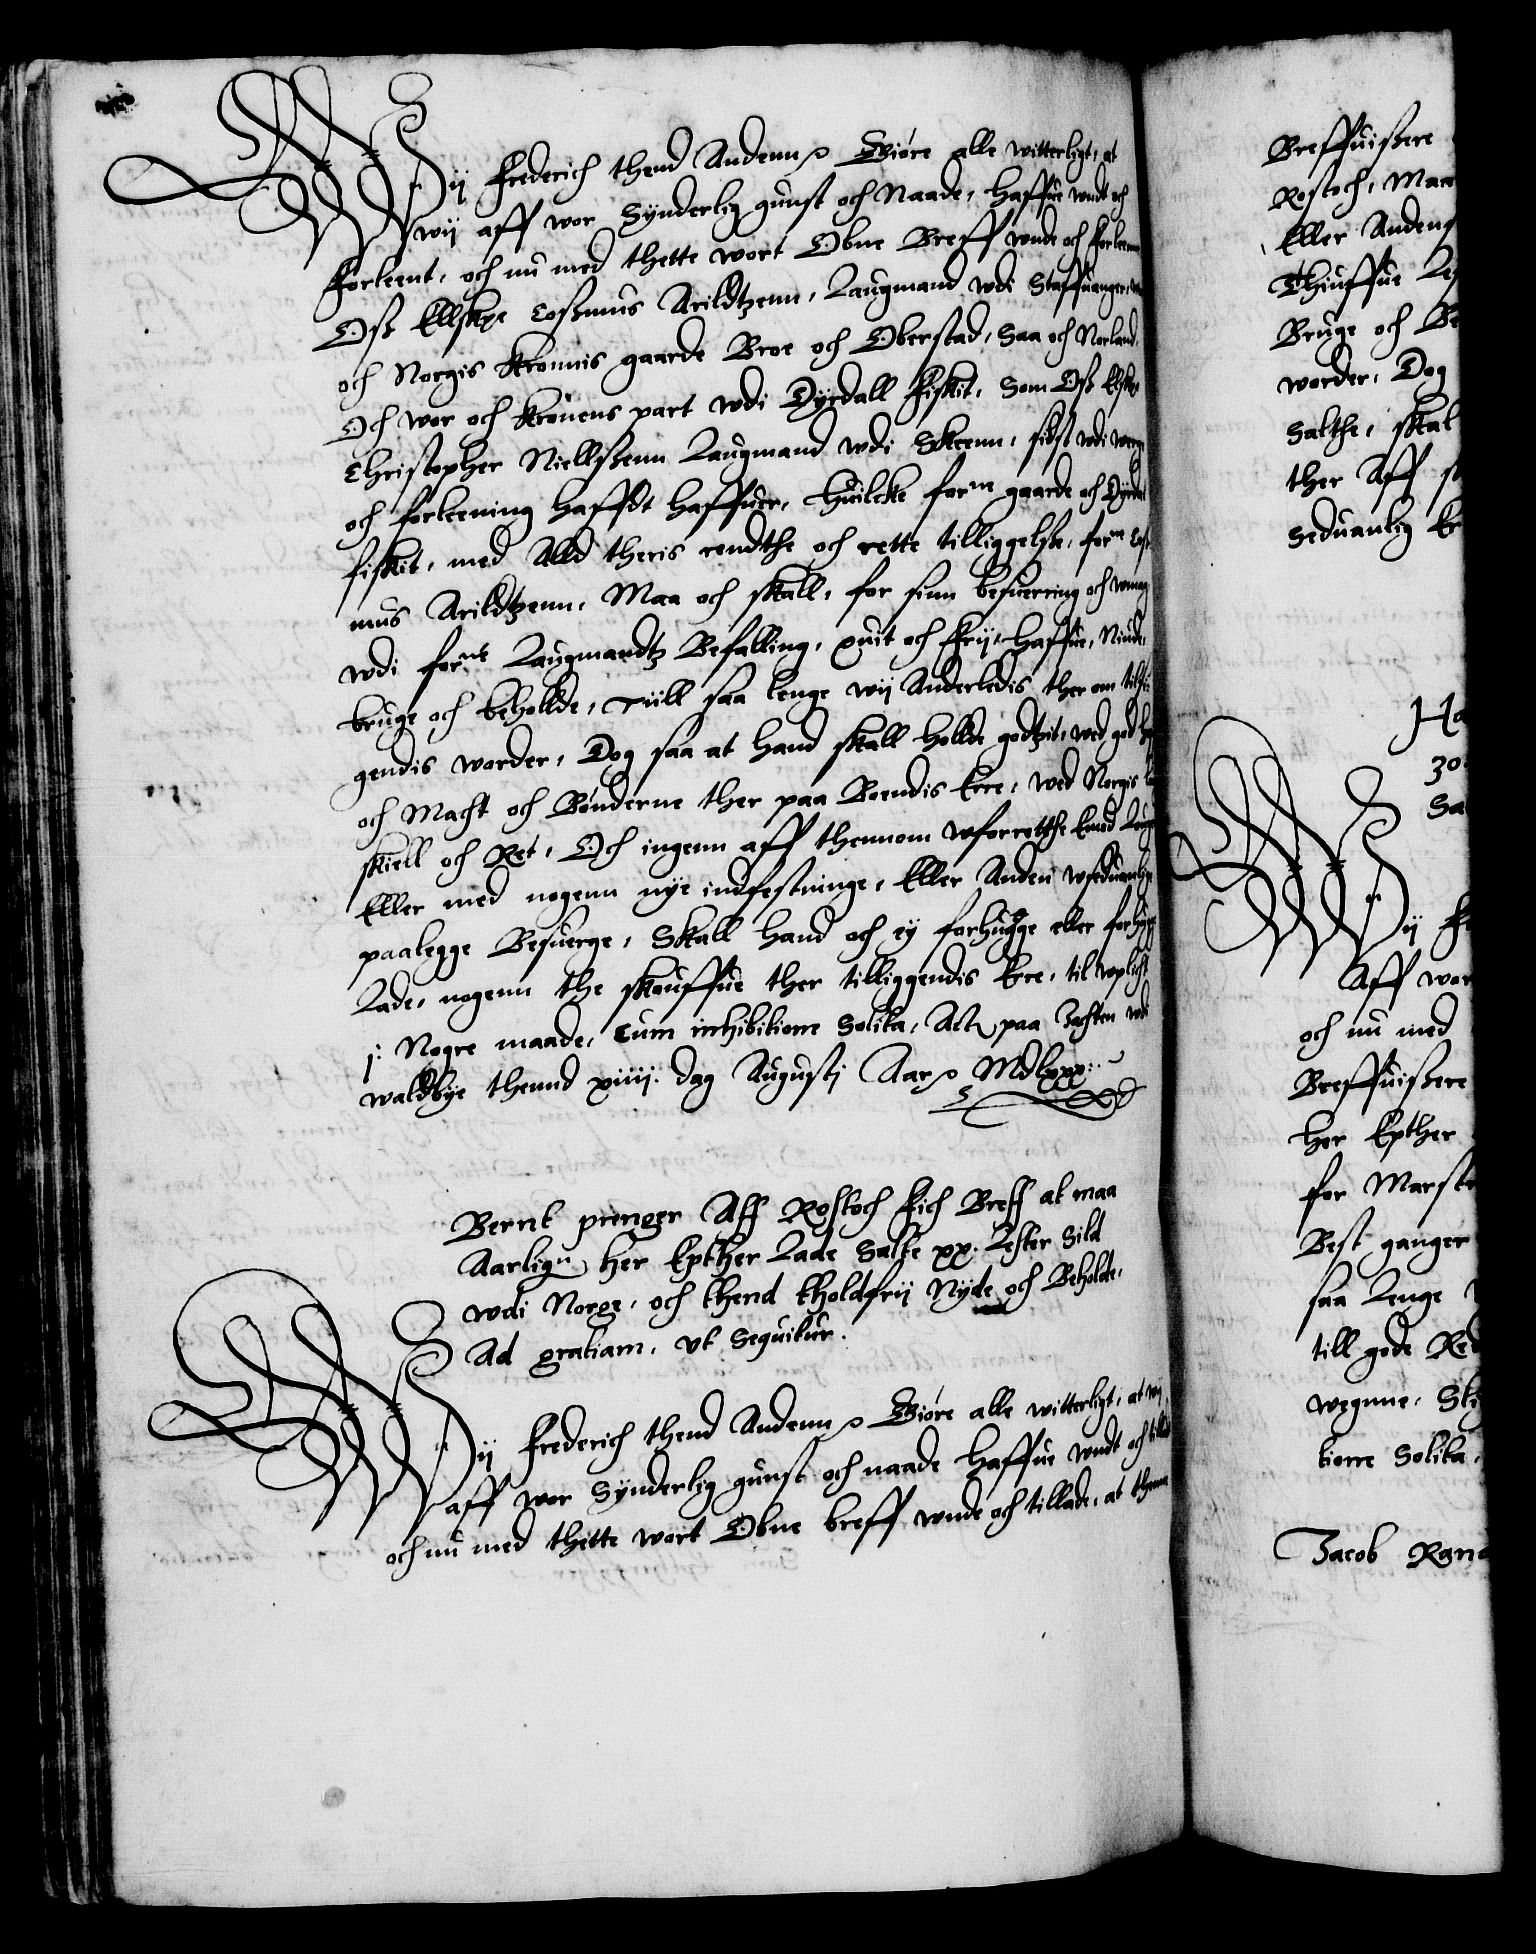 Wij Frederich thend Andenn Giøre alle witterligt, at
wij aff wor Synderlig gunst och Naade, Haffue wndt och
forleent, och nu med thette wort Obne Breff wnde och forleene
Osz Ellskge Coszmus Arildtzenn, Laugmand wdi Staffuanger,
och Norgis Kronnis gaarde Broe och Oberstad, Saa och Norland,
Och wor och Kronens part wdi Dyrdall fiskit, Som Osz Elske
Christopher Niellszenn Laugmand wdi Skeenn, sidst wdi werge
och forleening hafft haffuer, Huilcke forne gaarde och Dyrdal
fiskit, med Alld theris rendthe och rette tilliggelse, forne Cosz
mus Arildtzenn, Maa och skall, for sinn besuerring och wmag
wdi forne Laugmandtz Befalling, quit och frij, Haffue, Niude,
bruge och beholde, Till saa lenge wij Anderledis ther om tilsi
gendis worder, Dog saa at hand skall holde godtzit, wed god heffd
och Macht och Bønderne ther paa Boendis Ere, wed Norgis lou
skiell och Ret, Och ingenn aff thennom wforretthe Emod Lougen
Eller med nogenn nye indfestninge, Eller Anden wseduanlig
paalegge Besuerge, Skall hand och ey forhugge eller forhugge
Lade, nogenn the skouffue ther tilliggendis Ere, til wplicht
j: Nogre maade, Cum inhibitione Solita, Actum paa Jachten wdi
waldbye thennd xiiij. dag Augustj Aar MDlxxx.
Bernt prenger Aff Rostoch fich Breff at maa
Aarligen her Epther Lade Salte xx. Lester Sild
wdi Norge, och thend tholdfrij Nyde och Beholde,
Ad gratiam, vt Sequitur.
Wij Frederich thend Andenn Giøre alle witterligt, at wij
aff wor Synderlig gunst och naade Haffue wndt och tillat
och nu med thette wort Obne breff wnde och tillade, at thenne
Breffuiszere
Rostoch, Maa
Eller Anden
Thiuffue
Bruge och Be
worder, Dog
Salthe, skal
ther Aff
Seduanlig
Ha
30
Sa
Wij
Aff wor
och nu med
Breffuiszere
her Epther
for Marst
Best ganger
saa Lenge
till gode Red
wegnne,
tione Solita,
Jacob